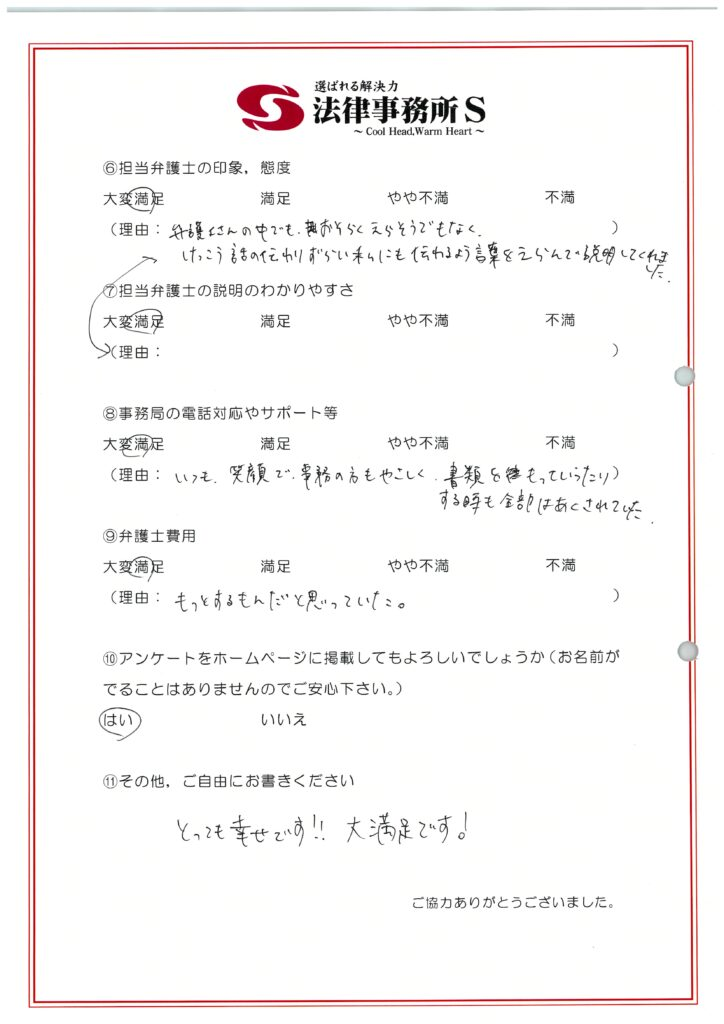 選ばれる解決力
法律事務所S
～Cool Head,Warm Heart～
⑥担当弁護士の印象，態度
大変満足 満足 やや不満 不満
（理由：弁護士さんの中でも、おそらくえらそうでもなく、）
けっこう話の伝わりずらい私にも伝わるよう言葉をえらんで説明してくれました。
⑦担当弁護士の説明のわかりやすさ
大変満足 満足 やや不満 不満
（理由： ）
⑧事務局の電話対応やサポート等
大変満足 満足 やや不満 不満
（理由：いつも、笑顔で、事務の方もやさしく、書類をもっていったり）
する時も全部はあくされていた。
⑨弁護士費用
大変満足 満足 やや不満 不満
（理由：もっとするもんだと思っていた。 ）
⑩アンケートをホームページに掲載してもよろしいでしょうか（お名前が
でることはありませんのでご安心下さい。）
はい いいえ
⑪その他，ご自由にお書きください
とっても幸せです!! 大満足です!
ご協力ありがとうございました。